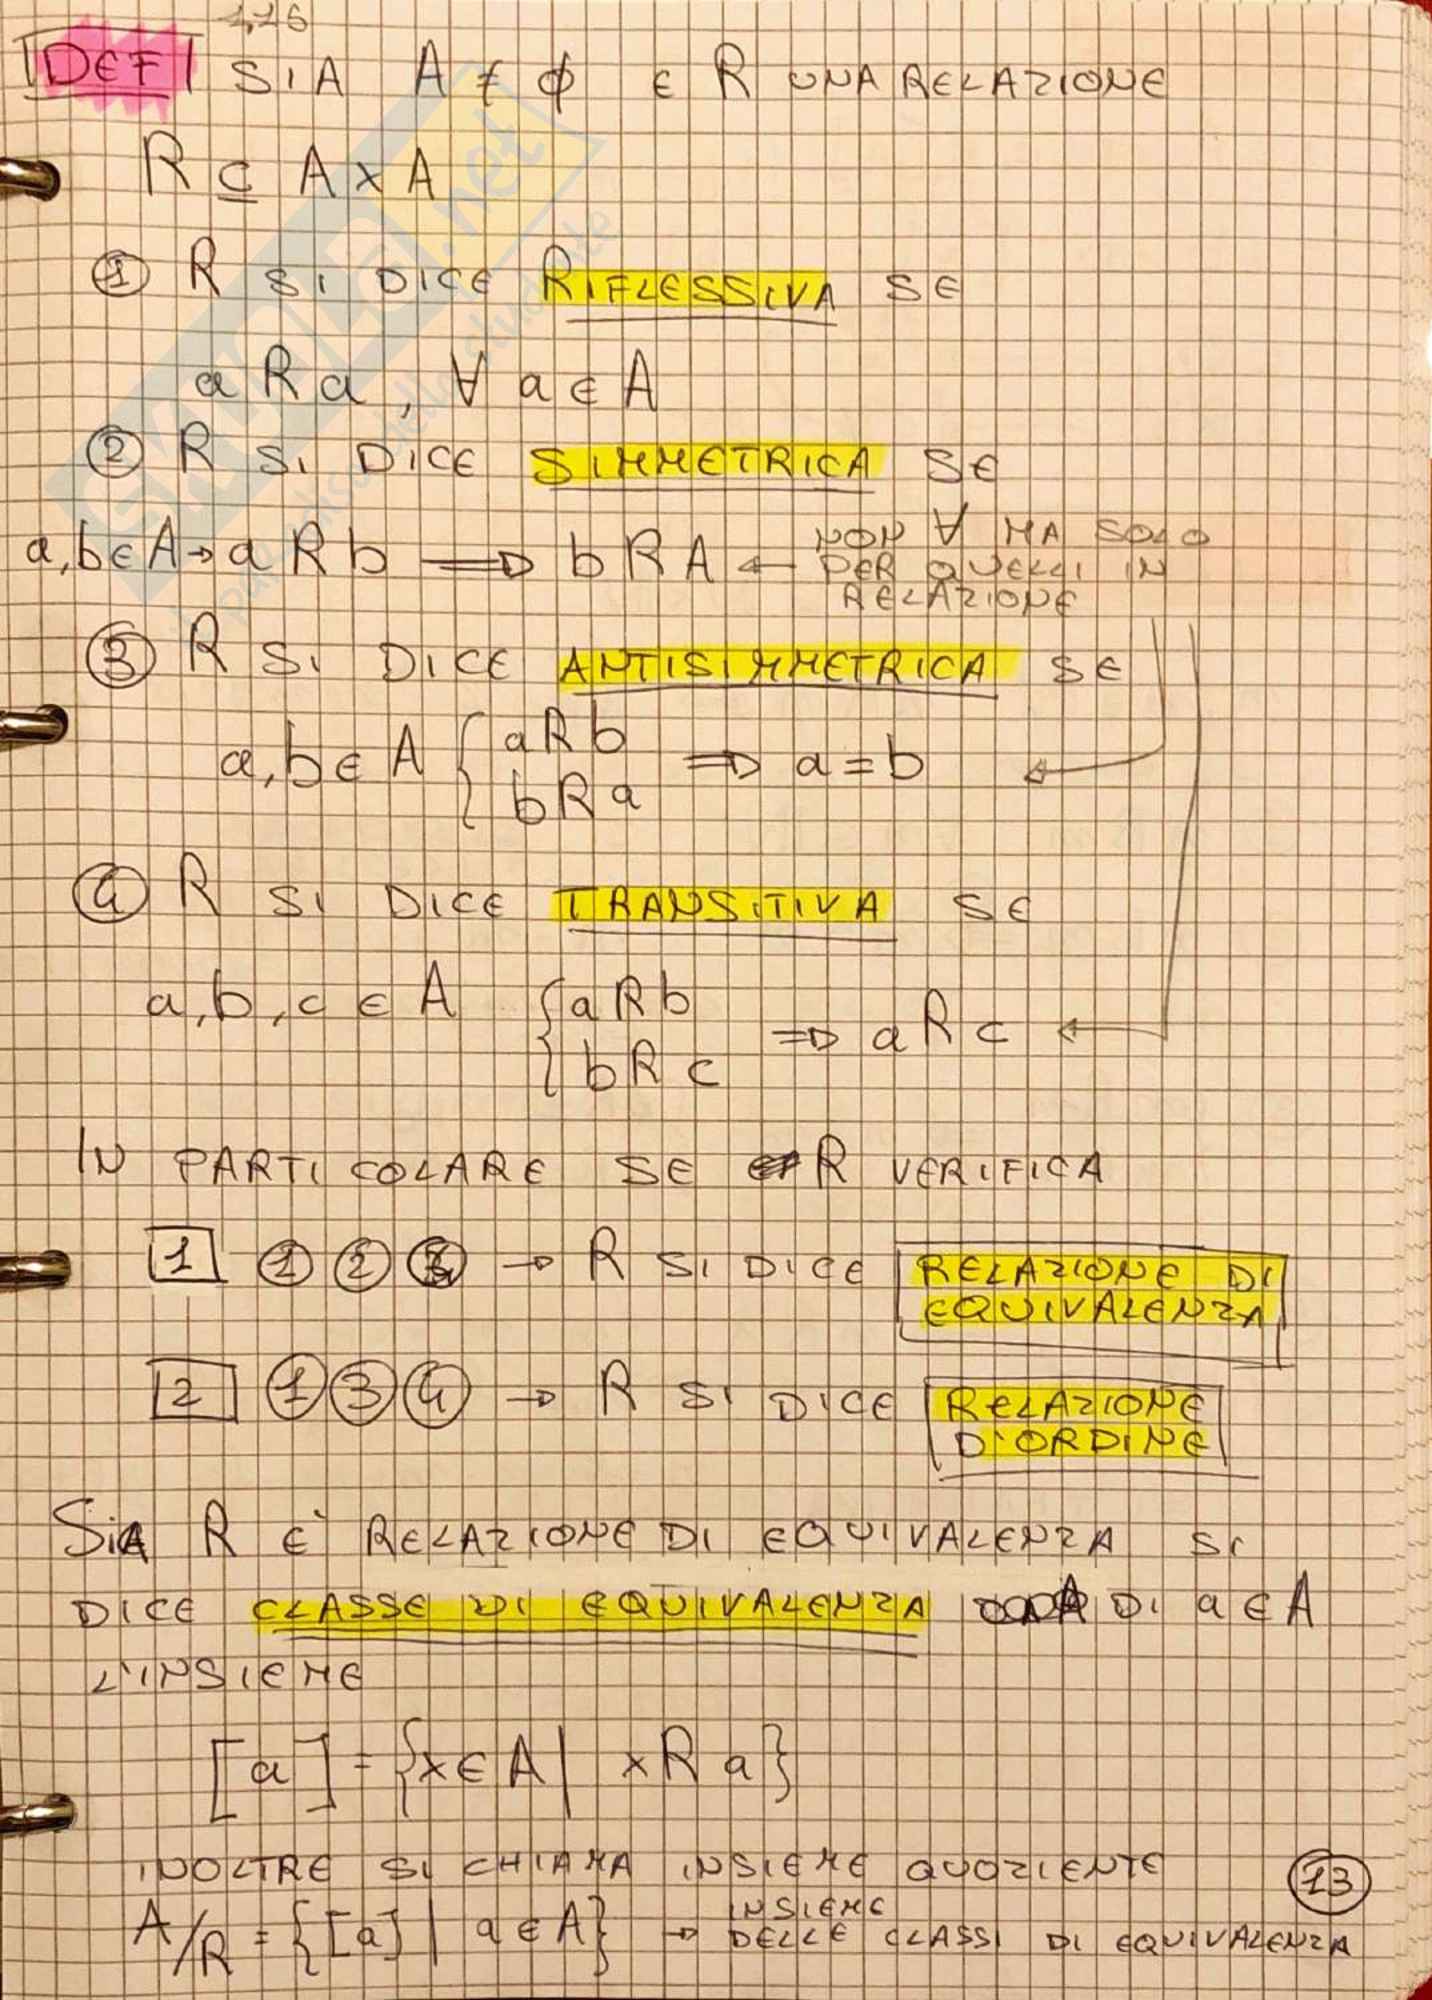 1,26
DEF SIA A ≠ ϕ E R UNA RELAZIONE
R ⊆ A×A
① R SI DICE RIFLESSIVA SE
a R a , ∀ a ∈ A
② R SI DICE SIMMETRICA SE
a,b ∈ A → a R b ⟹ b R A ← NON ∀ MA SOLO
PER QUELLI IN
RELAZIONE
③ R SI DICE ANTISIMMETRICA SE
a,b ∈ A { aRb
bRa ⟹ a=b
④ R SI DICE TRANSITIVA SE
a,b,c ∈ A { aRb
bRc ⟹ aRc
IN PARTICOLARE SE R VERIFICA
1 ① ② ④ → R SI DICE RELAZIONE DI
EQUIVALENZA
2 ① ③ ④ → R SI DICE RELAZIONE
D'ORDINE
SIA R È RELAZIONE DI EQUIVALENZA SI
DICE CLASSE DI EQUIVALENZA DI a ∈ A
L'INSIEME
[a] = {x ∈ A | x R a}
INOLTRE SI CHIAMA INSIEME QUOZIENTE
A/R = {[a] | a ∈ A} → INSIEME
DELLE CLASSI DI EQUIVALENZA
13